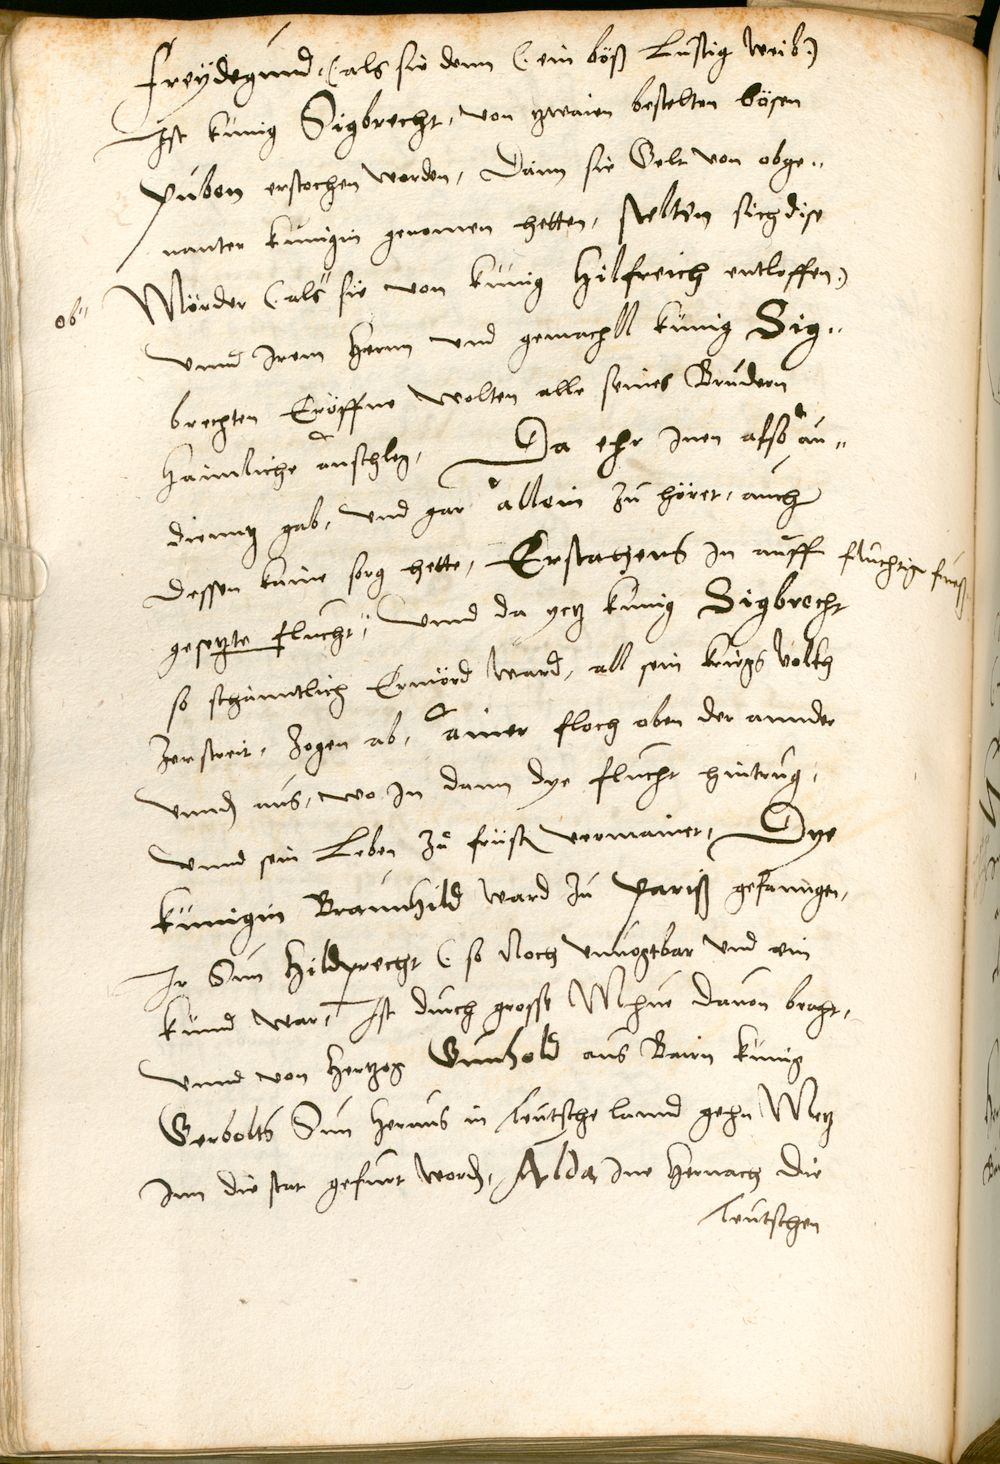 Freÿdegund, (als sie denn (. ein böß Lustig Weib.)
Ist künig Sigbrecht, von zwaien bestelten bösen
Püben erstochen worden, Dann sie Gelt von obge„
nanter künigin genomen hetten, stelten sich dise
Mörder (. als" sie von künig Hilfreich entloffen.)
ob"
Unnd Irem Herrn und gemachll künig Sig„
brechten Eröffne wolten alle seines Brüdern
Haimliche anschleg, Da ehr Inen also au„
dienntz gab, und gar allein zü höret, auch
dessen kaine sorg hette, Erstachens In auff flüchtige füeß
gesetzte flücht", Unnd da yetz künig Sigbrecht
so schanntlich Ermörd ward, all sein kriegs Volkh
Zerstreit, Zogen ab, ainer floch oben der annder
unnden aus, wo In dann dye flücht hintrüg,
unnd sein Leben zü frist vermainet, Dye
künigin Braunhild ward zü Pariß gefanngen,
Ir Sün Hildprecht (. so Noch unuogtbar und ein
künd war, Ist dürch grosse Mhüe dauon bracht,
unnd von Hertzog Gunhold aus Bairn künig
Gerbolts Sun heraus in teütsche lannd gehn Metz
Inn die stat gefürt worden, Alda Ine hernach die
teütschen